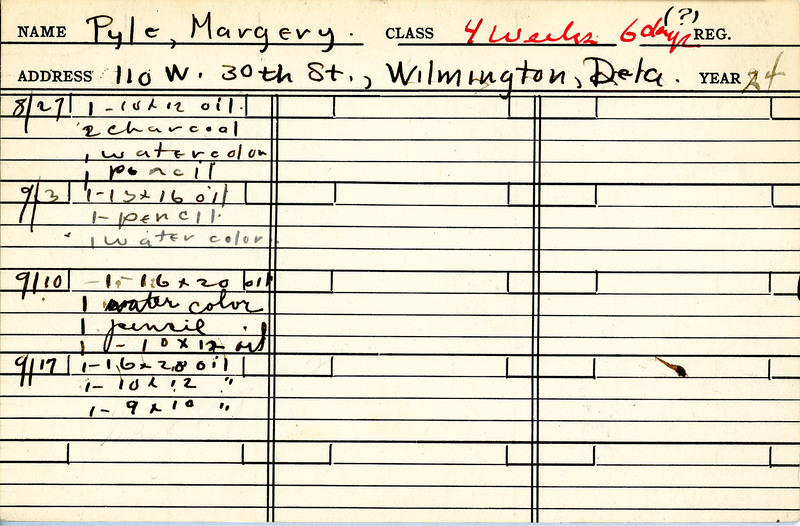 NAME Pyle, Margery. CLASS 4 Weeks 6 days (?) REG.
ADDRESS 110 W. 30th St., Wilmington, Dela. YEAR 24
8/27 1-10x12 oil.
2 charcoal
1 watercolor
1 pencil
9/3 1-13x16 oil
1-pencil.
1 water color.
9/10 -1-16x20 oil
1 water color
1 pencil
1 - 10x12 oil
9/17 1-16x20 oil
1- 10x12 "
1- 9x10 "